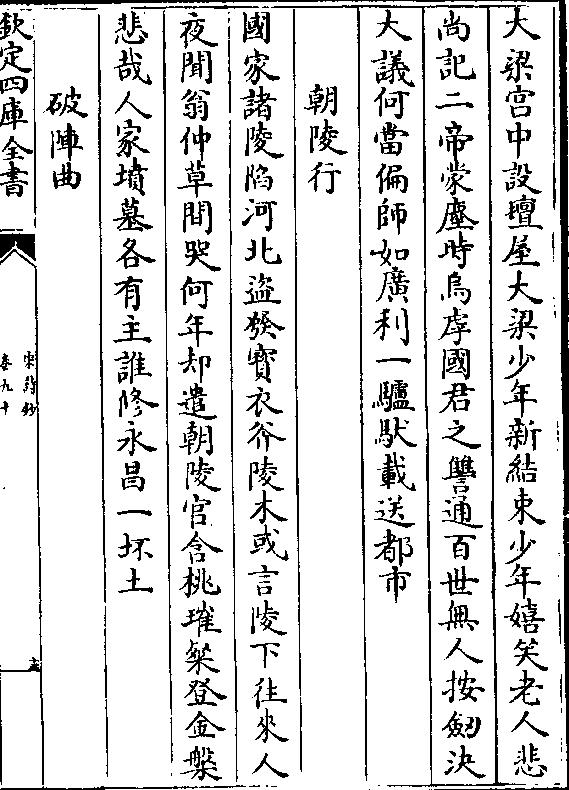 大梁宫中設璮屋大梁少年新結束少年嬉笑老人悲
尚記二帝蒙塵時烏虖國君之讐通百世無人按劒決
大議何當偏師如廣利一驢馱載送都市
朝陵行
國家諸陵陷河北盜發寶衣斧陵木或言陵下往來人
夜聞翁仲草間哭何年却遣朝陵官含桃璀粲登金槃
悲哉人家墳墓各有主誰修永昌一坏土
破陣曲
欽定四庫全書
宋詩鈔
卷九十